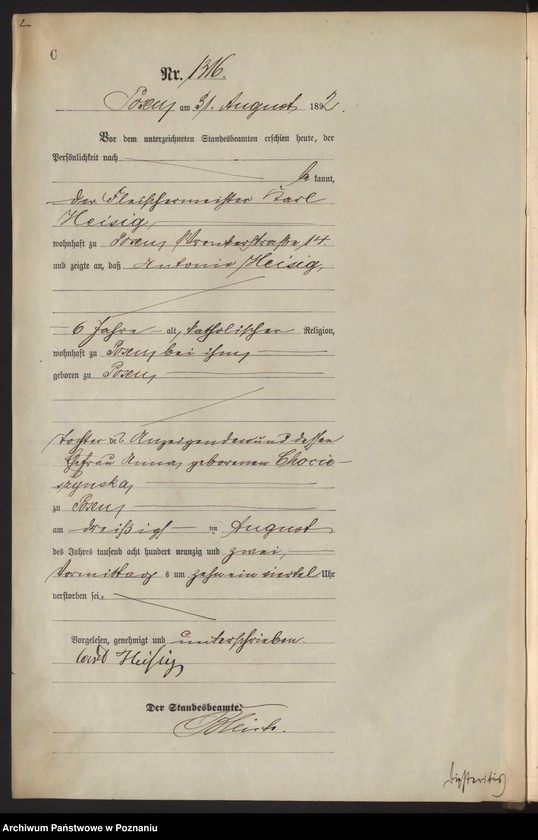 2
C
Nr. 1316.
Posen, am 31. August 1892.
Vor dem unterzeichneten Standesbeamten erschien heute, der
Persönlichkeit nach
be kannt,
der Fleischermeister Karl
Heisig,
wohnhaft zu Posen, Wronkerstraße 14
und zeigte an, daß Antonie Heisig,
6 Jahre alt, katholischer Religion,
wohnhaft zu Posen, bei ihm,
geboren zu Posen,
Tochter des Anzeigenden und dessen
Ehefrau Anna, geborenen Chocie-
szynska,
zu Posen,
am dreißig ten August
des Jahres tausend acht hundert neunzig und zwei,
Vormittag s um zehn ein viertel Uhr
verstorben sei.
Vorgelesen, genehmigt und unterschrieben.
Carl Heisig
Der Standesbeamte.
Archiwum Państwowe w Poznaniu